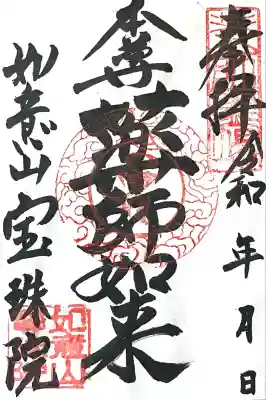 奉拝 令和 年 月 日
本尊 薬師如来
如意山 宝珠院